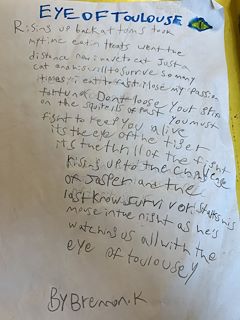 EYE OF TOULOUSE
Rising up back at toms took
my time eatin treats went the
distance now im not to eat Just a
cat and his will to survive so many
times
Dont loose your grip
on the squirells of Past You must
Fight to keep You alive
its the eye of the tiger
its the thrill of the fight
Rising up to the Challenge
Of Jasper and the
last know survivor stalks his
mouse in the night as he's
watching us all with the
eye of toulousey
By Brennon.K